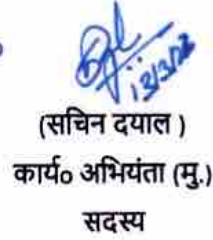 13/3/23
(सचिन दयाल )
कार्य० अभियंता (मु.)
सदस्य